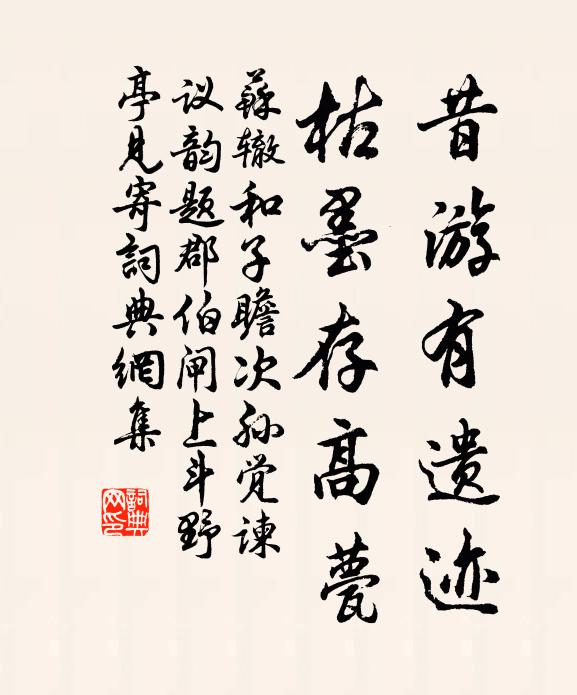 昔游有遗迹
枯墨存高甍
蘇辙和子瞻次孙觉谏
议韵题郡伯闸上斗野
亭見寄詞典網集
詞典网印